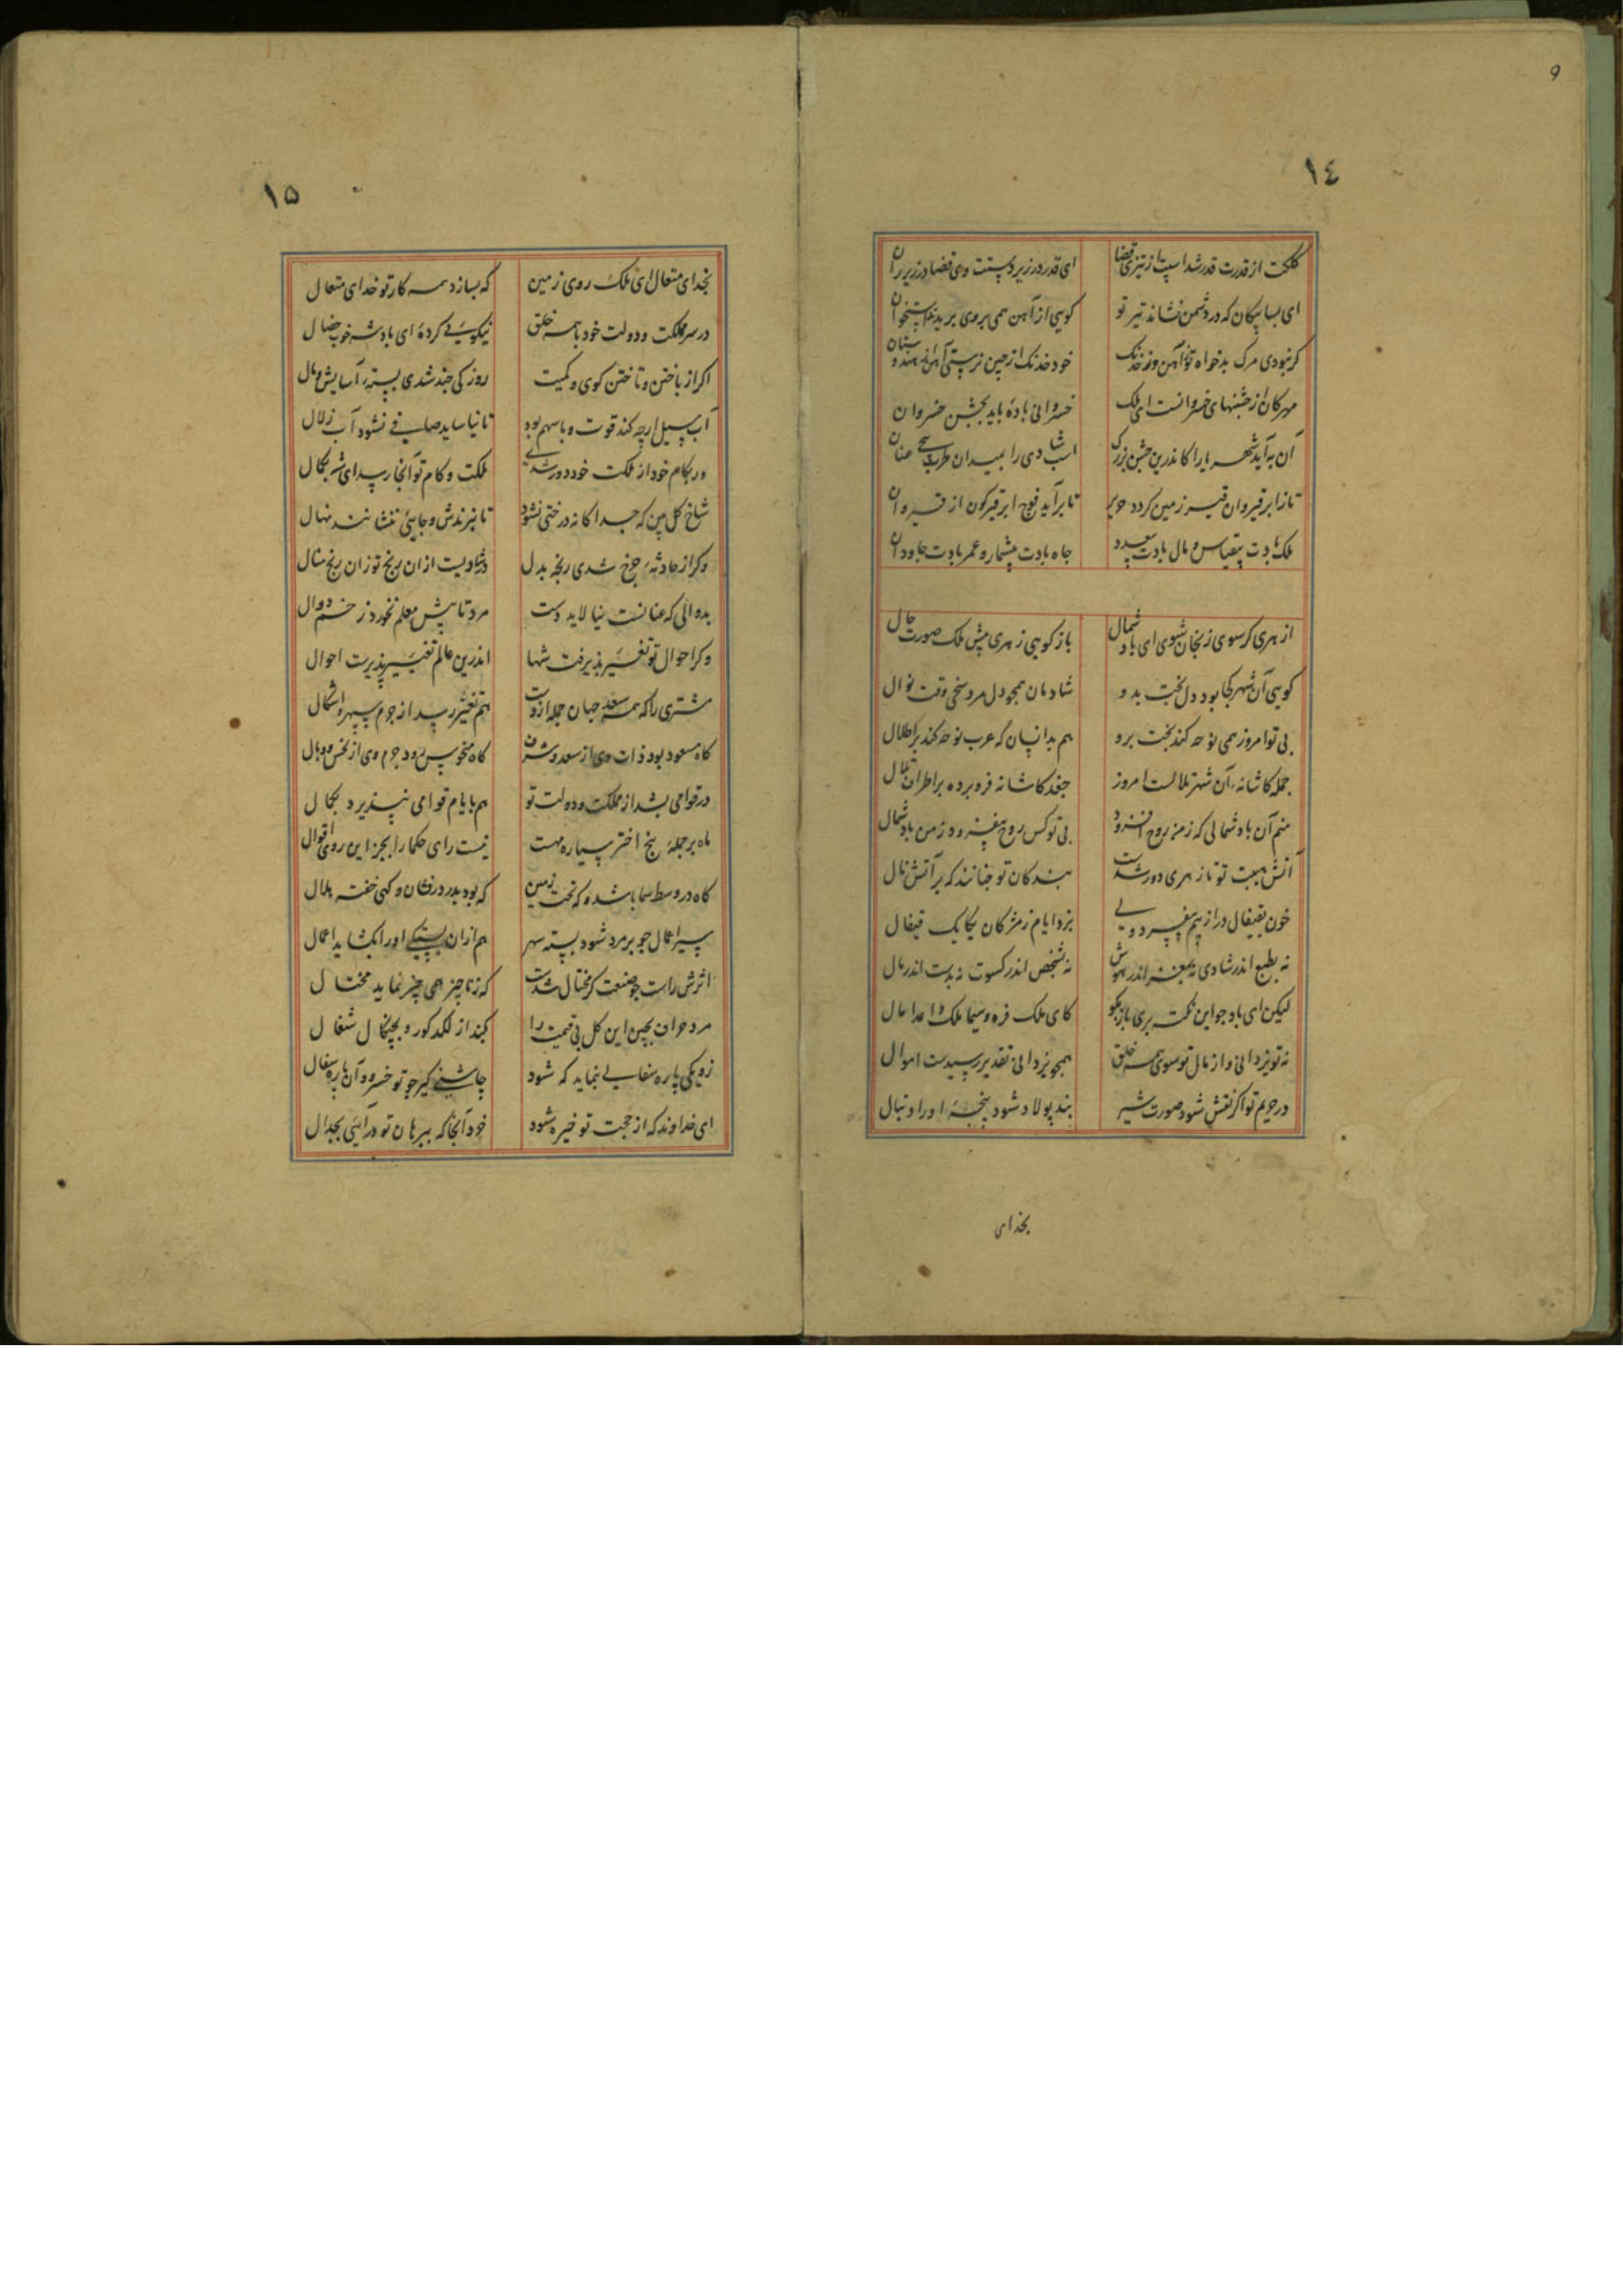 9
١٤
کلکت از قدرت قدر شد اسپت از تیزی قضا ای قدر در زیر دستت وی قضا در زیر ران
ای بسا پیکان که در دشمن نشاند تیر تو کویی از آهن همی بروی برید استخوان
کر نبودی مرک بدخواه تو از آهن وز خدنک خود خدنک از چین نرستی آهن از هندوستان
مهرکان از جشنهای خسروانست ای ملک خسروانی باده باید بجشن خسروان
آن به آید شهریارا کاندرین جشن بزرک اسب شادی را بمیدان طرب سحی عنان
تا ز ابر قیروان قیر زمین کردد حریر تا برآید فوج ابر قیرکون از قیروان
ملک بادت بیقیاس و مال بادت بیعدد جاه بادت بیشمار و عمر بادت جاودان
از هری کر سوی زنجان شوی ای باد شمال باز کویی ز هری پیش ملک صورت حال
کویی آن شهر کجا بود دل بخت بدو شادمان همچو دل مرد سخی وقت نوال
بی تو امروز همی نوحه کند بخت برو هم بدانسان که عرب نوحه کند بر اطلال
جمله کاشانه آن شهر تلالست امروز جغد کاشانه فرو برده بر اطراف تلال
منم آن باد شمالی که ز من روح افزود بی تو کس روح نیفزود ز من باد شمال
آتش هیبت تو تا ز هری دور شدست بندکان تو چنانند که بر آتش نال
خون بقیفال در از بیم بیفسرد ویی بزد ایام ز مژکان یکایک قیفال
نه بطبع اندر شادی نه بمغز اندر هوش نه بشخص اندر کسوت نه بدست اندر مال
لیکن ای باد چو این نکته بری باز بکو کای ملک فره و سیما ملک و اعدا مال
نه تو یزدانی و از مال تو سوی همه خلق همچو یزدانی تقدیر رسیدست اموال
در حریم تو اکر نقش شود صورت شیر بند پولاد شود پنجهٔ او را دنبال
بخدای
١۵
بخدای متعال ای ملک روی زمین که بسازد همه کار تو خدای متعال
در سر مملکت و دولت خود با همه خلق نیکویی کردهٔ ای پادشه خوب خصال
اکر از باختن و تاختن کوی و کمیت روزکی چند شدی بسته آسایش و مال
آب سیل ارچه کند قوت و با سهم بود تا نیاساید صافی نشود آب زلال
ور بکام خود از ملکت خود دور شدی ملکت و کام تو آنجا رسد ای شه بکمال
شاخ کل بین که جداکانه درختی نشود تا نبرندش و جایی ننشانند نهال
وکر از حادثهٔ چرخ شدی رنجه بدل در شادیست از آن رنج تو زان رنج منال
بدوالی که عنانست نیالاید دست مرد تا پیش معلم نخورد زخم دوال
وکر احوال تو تغییر پذیرفت شها اندرین عالم تغییر پذیرست احوال
مشتری را که همه سعد جهان جمله ازوست هم تغیر رسد از جرم سپهر و اشکال
کاه مسعود بود ذات وی از سعد و شرف کاه منحوس بود جرم وی از نحس و وبال
در قوامی بشد از مملکت و دولت تو هم بایام قوامی بپذیرد بکمال
ماه بر جمله پنج اختر سیاره مهست نیست رای حکما را بجز این روی اقوال
کاه در وسط سما باشد و که تحت زمین که بود بدر درفشان و کهی خفته هلال
سیر اعمال چو بر مرد شود بسته سپهر هم از آن بستکی او را بکشاید اعمال
اثرش راست چو صنعت کر محتال شدست که ز ناچیز همی چیز نماید محتال
کند از لکد کور و بچنکال شغال
ز یکی پاره سفالی بنماید که شود چاشنی کیر چو تو خسرو آن پاره سفال
ای خداوند که از حجت تو خیره شود خود آنجا که ببرهان تو درآیی بجدال